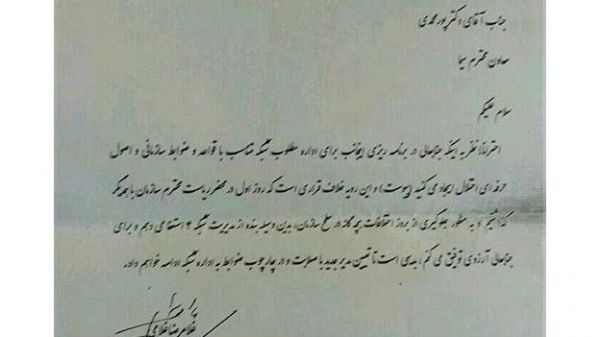 جناب آقای دکتر پورمحمدی
معاون محترم سیما
سلام علیکم
احتراماً نظر به اینکه جنابعالی در برنامه ریزی اینجانب برای اداره مطلوب شبکه متناسب با قواعد و ضوابط سازمانی و اصول
حرفه ای اختلال ایجاد می کنید (پیوست) و این رویه خلاف قراری است که روز اول در محضر ریاست محترم سازمان با همدیگر
گذاشتیم و به منظور جلوگیری از بروز اختلافات بچه گانه در سطح سازمان، بدین وسیله بنده از مدیریت شبکه ۴ استعفا می دهم و برای
جنابعالی آرزوی توفیق می کنم، بدیهی است تا تعیین مدیر جدید با صلابت و در چارچوب ضوابط به اداره شبکه ادامه خواهم داد.
غلامرضا غلامی